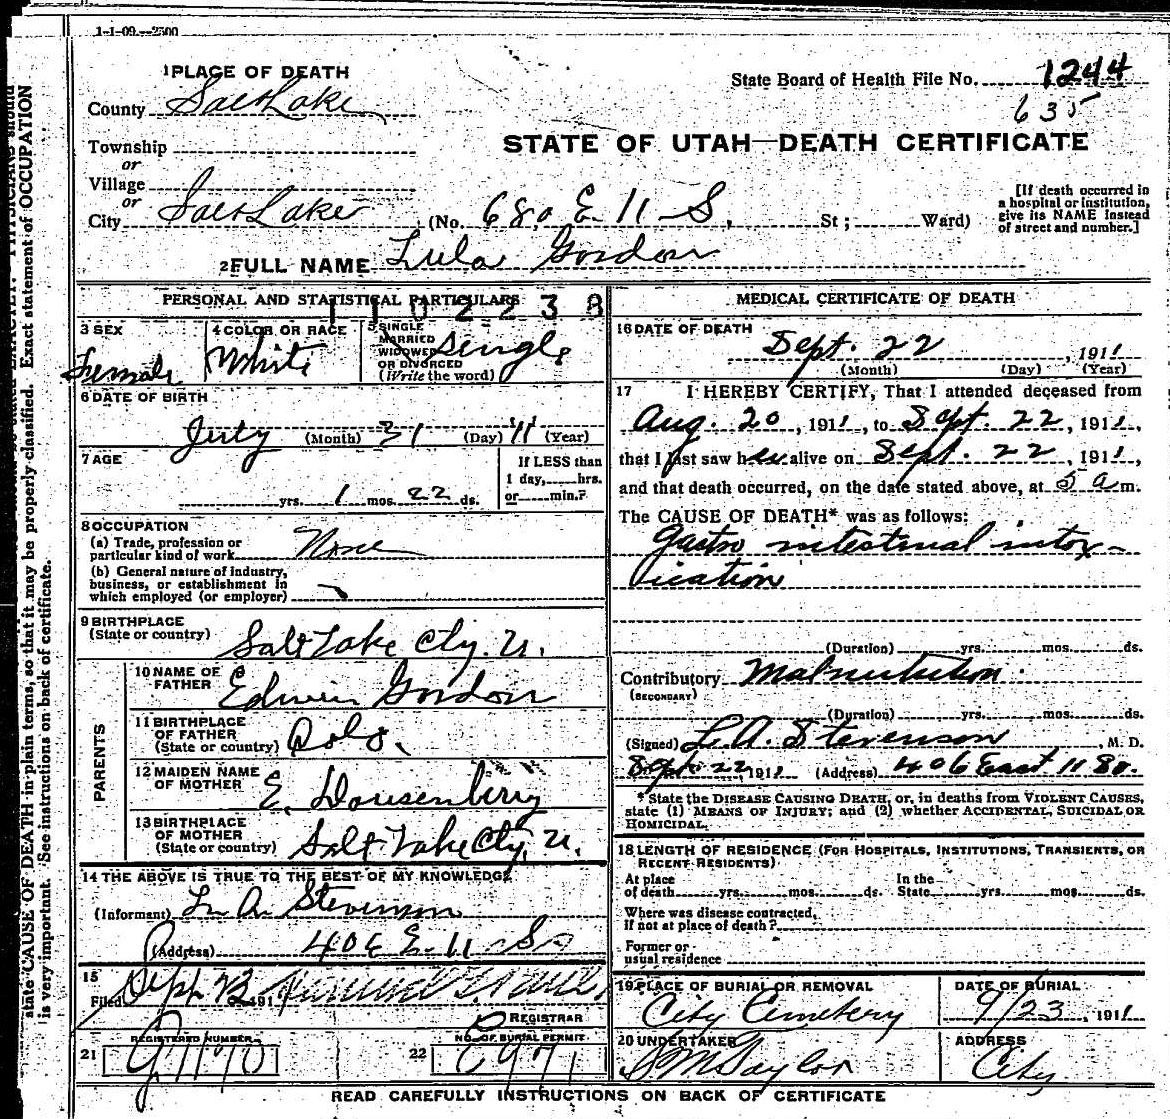 1-1-09.--2500
1 PLACE OF DEATH
State Board of Health File No. 1244
County Salt Lake
635
STATE OF UTAH—DEATH CERTIFICATE
Township
or
Village
or
City Salt Lake (No. 680 E 11 S. St; Ward)
[If death occurred in
a hospital or institution,
give its NAME instead
of street and number.]
2 FULL NAME Lula Gordon
PERSONAL AND STATISTICAL PARTICULARS
110 2 2 3 8
3 SEX
Female
4 COLOR OR RACE
White
5 SINGLE
MARRIED
WIDOWED
OR DIVORCED
(Write the word)
Single
6 DATE OF BIRTH
(Month) 31 (Day) 11 (Year)
7 AGE
yrs. 1 mos. 22 ds.
If LESS than
1 day, hrs.
or min.?
8 OCCUPATION
(a) Trade, profession or
particular kind of work None
(b) General nature of industry,
business, or establishment in
which employed (or employer)
9 BIRTHPLACE
(State or country) Salt Lake Cty. U.
PARENTS
10 NAME OF
FATHER Edwin Gordon
11 BIRTHPLACE
OF FATHER
(State or country) Colo.
12 MAIDEN NAME
OF MOTHER E.
13 BIRTHPLACE
OF MOTHER
(State or country) Salt Lake Cty, U.
14 THE ABOVE IS TRUE TO THE BEST OF MY KNOWLEDGE
(Informant) L. A. Stevenson
(Address) 406 E. 11 So
15
Filed Sept 23 191
REGISTRAR
21 REGISTERED NUMBER
22 NO. OF BURIAL PERMIT
MEDICAL CERTIFICATE OF DEATH
16 DATE OF DEATH
Sept. 22, 1911
(Month) (Day) (Year)
17 I HEREBY CERTIFY, That I attended deceased from
Aug. 20, 1911, to Sept. 22, 1911,
that I last saw her alive on Sept. 22, 1911,
and that death occurred, on the date stated above, at 5 a m.
The CAUSE OF DEATH* was as follows:
Gastro intestinal intox-
ication
(Duration) yrs. mos. ds.
Contributory Malnutrition.
(SECONDARY)
(Duration) yrs. mos. ds.
(Signed) L. A. Stevenson, M. D.
Sept 22, 1911 (Address) 406 East 11 So.
* State the DISEASE CAUSING DEATH, or, in deaths from VIOLENT CAUSES,
state (1) MEANS OF INJURY; and (2) whether ACCIDENTAL, SUICIDAL OR
HOMICIDAL.
18 LENGTH OF RESIDENCE (FOR HOSPITALS, INSTITUTIONS, TRANSIENTS, OR
RECENT RESIDENTS)
At place
of death yrs. mos. ds.
In the
State yrs. mos. ds.
Where was disease contracted,
if not at place of death?
Former or
usual residence
19 PLACE OF BURIAL OR REMOVAL
City Cemetery
DATE OF BURIAL
9/23, 1911
20 UNDERTAKER
Taylor
ADDRESS
City
READ CAREFULLY INSTRUCTIONS ON BACK OF CERTIFICATE
Exact statement of OCCUPATION
state CAUSE OF DEATH in plain terms, so that it may be properly classified.
is very important. See instructions on back of certificate.